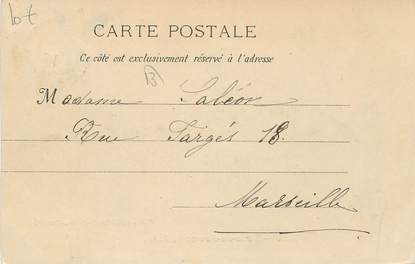 lot
CARTE POSTALE
Ce côté est exclusivement réservé à l'adresse
B
Madame Saléon
Rue Fargès 18.
Marseille